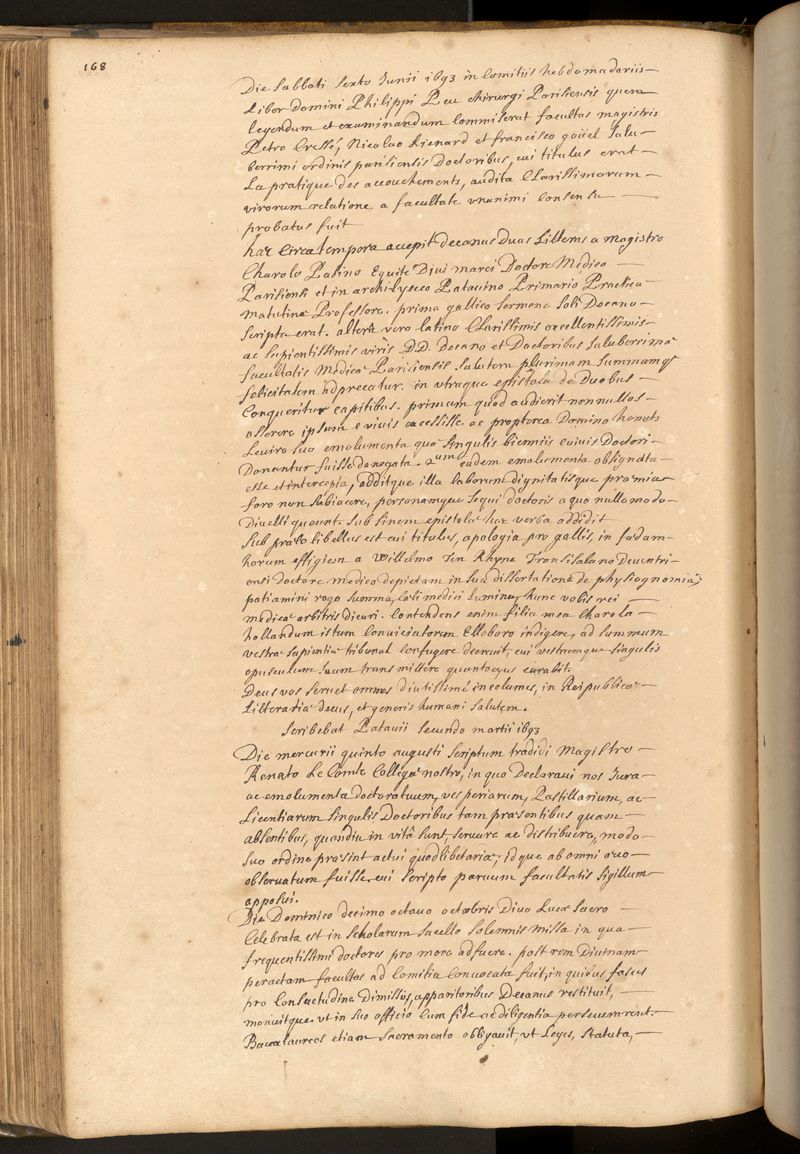 168
Die Sabbati sexto Junii 1693 in Comitiis hebdomadariis
Liber Domini Philippi Peu chirurgi Parisiensis quem
legendum et examinandum Commiserat facultas magistris
Petro Cressé, Nicolao Lienard et francisco goüel Salu-
berrimi ordinis parisiensis Doctoribus, cui titulus erat
La pratique des accouchements, audita Clarissimorum
virorum relatione a facultate vnanimi Consensu
probatus fuit
hac Circa tempora accepit decanus Duas Litteras a magistro
Charolo Patino Equite Divi marci Doctore Medico
Parisiensi et in archilyseo Patauino Primario Practicæ
matutinæ Professore. prima gallico Sermone Soli Decano
Scripta erat. altera vero latino Clarissimis excellentissimis
ac Sapientissimis viris D.D. Decano et Doctoribus Saluberrimæ
facultatis Medicæ Parisiensis Salutem plurimam Summamq;
felicitatem adprecatur. in vtraque epistola de Duobus
Conqueritur capitibus. primum quod audierit nonnullos
asserere ipsum e viuis excessisse ac propterea Domino homets
Leviro Suo emolumenta quæ Singulis bienniis cuiuis Doctori
Donantur fuisse denegata. 2um eadem emolumenta obsignata
esse et intercepta, additque illa laborum dignitatisque præmia
foro non Subiacere, personamque Sequi doctoris a quo nullo modo
Diuelli queunt. Sub finem epistolæ hæc verba addidit
Sub prælo libellus est cui titulus, apologia pro gallis, in fœdam
horum effigiem a Willelmo Ten Rhyne Transisalano Deuentri-
ensi doctore medico depictam in Sua dissertatione de physiognomia;
patiamini rogo Summa Cœli medici Lumina, hunc vobis rei
medicæ arbitris dicari. Contendens enim filia mea Charola
hollandum istum Conuiciatorem Elleboro indigere, ad Summum
vestræ Sapientiæ tribunal Confugere decreuit, cui vestrumque Singulis
opusculum Suum transmittere quantocyus curabit.
Deus vos Seruet omnes diutissimè incolumes, in Reipublicæ
Litterariæ decus, et generis humani Salutem.
Scribebat Patauii Secundo martii 1693
Die mercurii quinto augusti Scriptum tradidi Magistro
Renato Le Comte Collegæ nostro, in quo Declaraui nos Jura
ac emolumenta doctoratuum, vesperiarum, Pastillarium, ac
Licentiarum Singulis Doctoribus tam præsentibus quam
absentibus, quandiu in vitâ Sunt, Seruare ac distribuere, modo
Suo ordine præsint actui quodlibetariæ; idque ab omni æuo
obseruatum fuisse. cui Scripto paruum facultatis Sigillum
apposui.
Die Dominico decimo octauo octobris Diuo Lucæ Sacro
Celebrata est in Scholarum Sacello Solemnis missa in qua
frequentissimi doctores pro more adfuere. post rem Diuinam
peractam facultas ad Comitia Conuocata fuit, in quibus fasces
pro Consuetudine Dimissos, apparitoribus Decanus restituit,
monuitque vt in Suo officio Cum fide ac diligentia perseuerarent.
Baccalaureos etiam Sacramento obligauit, vt Leges, Statuta,